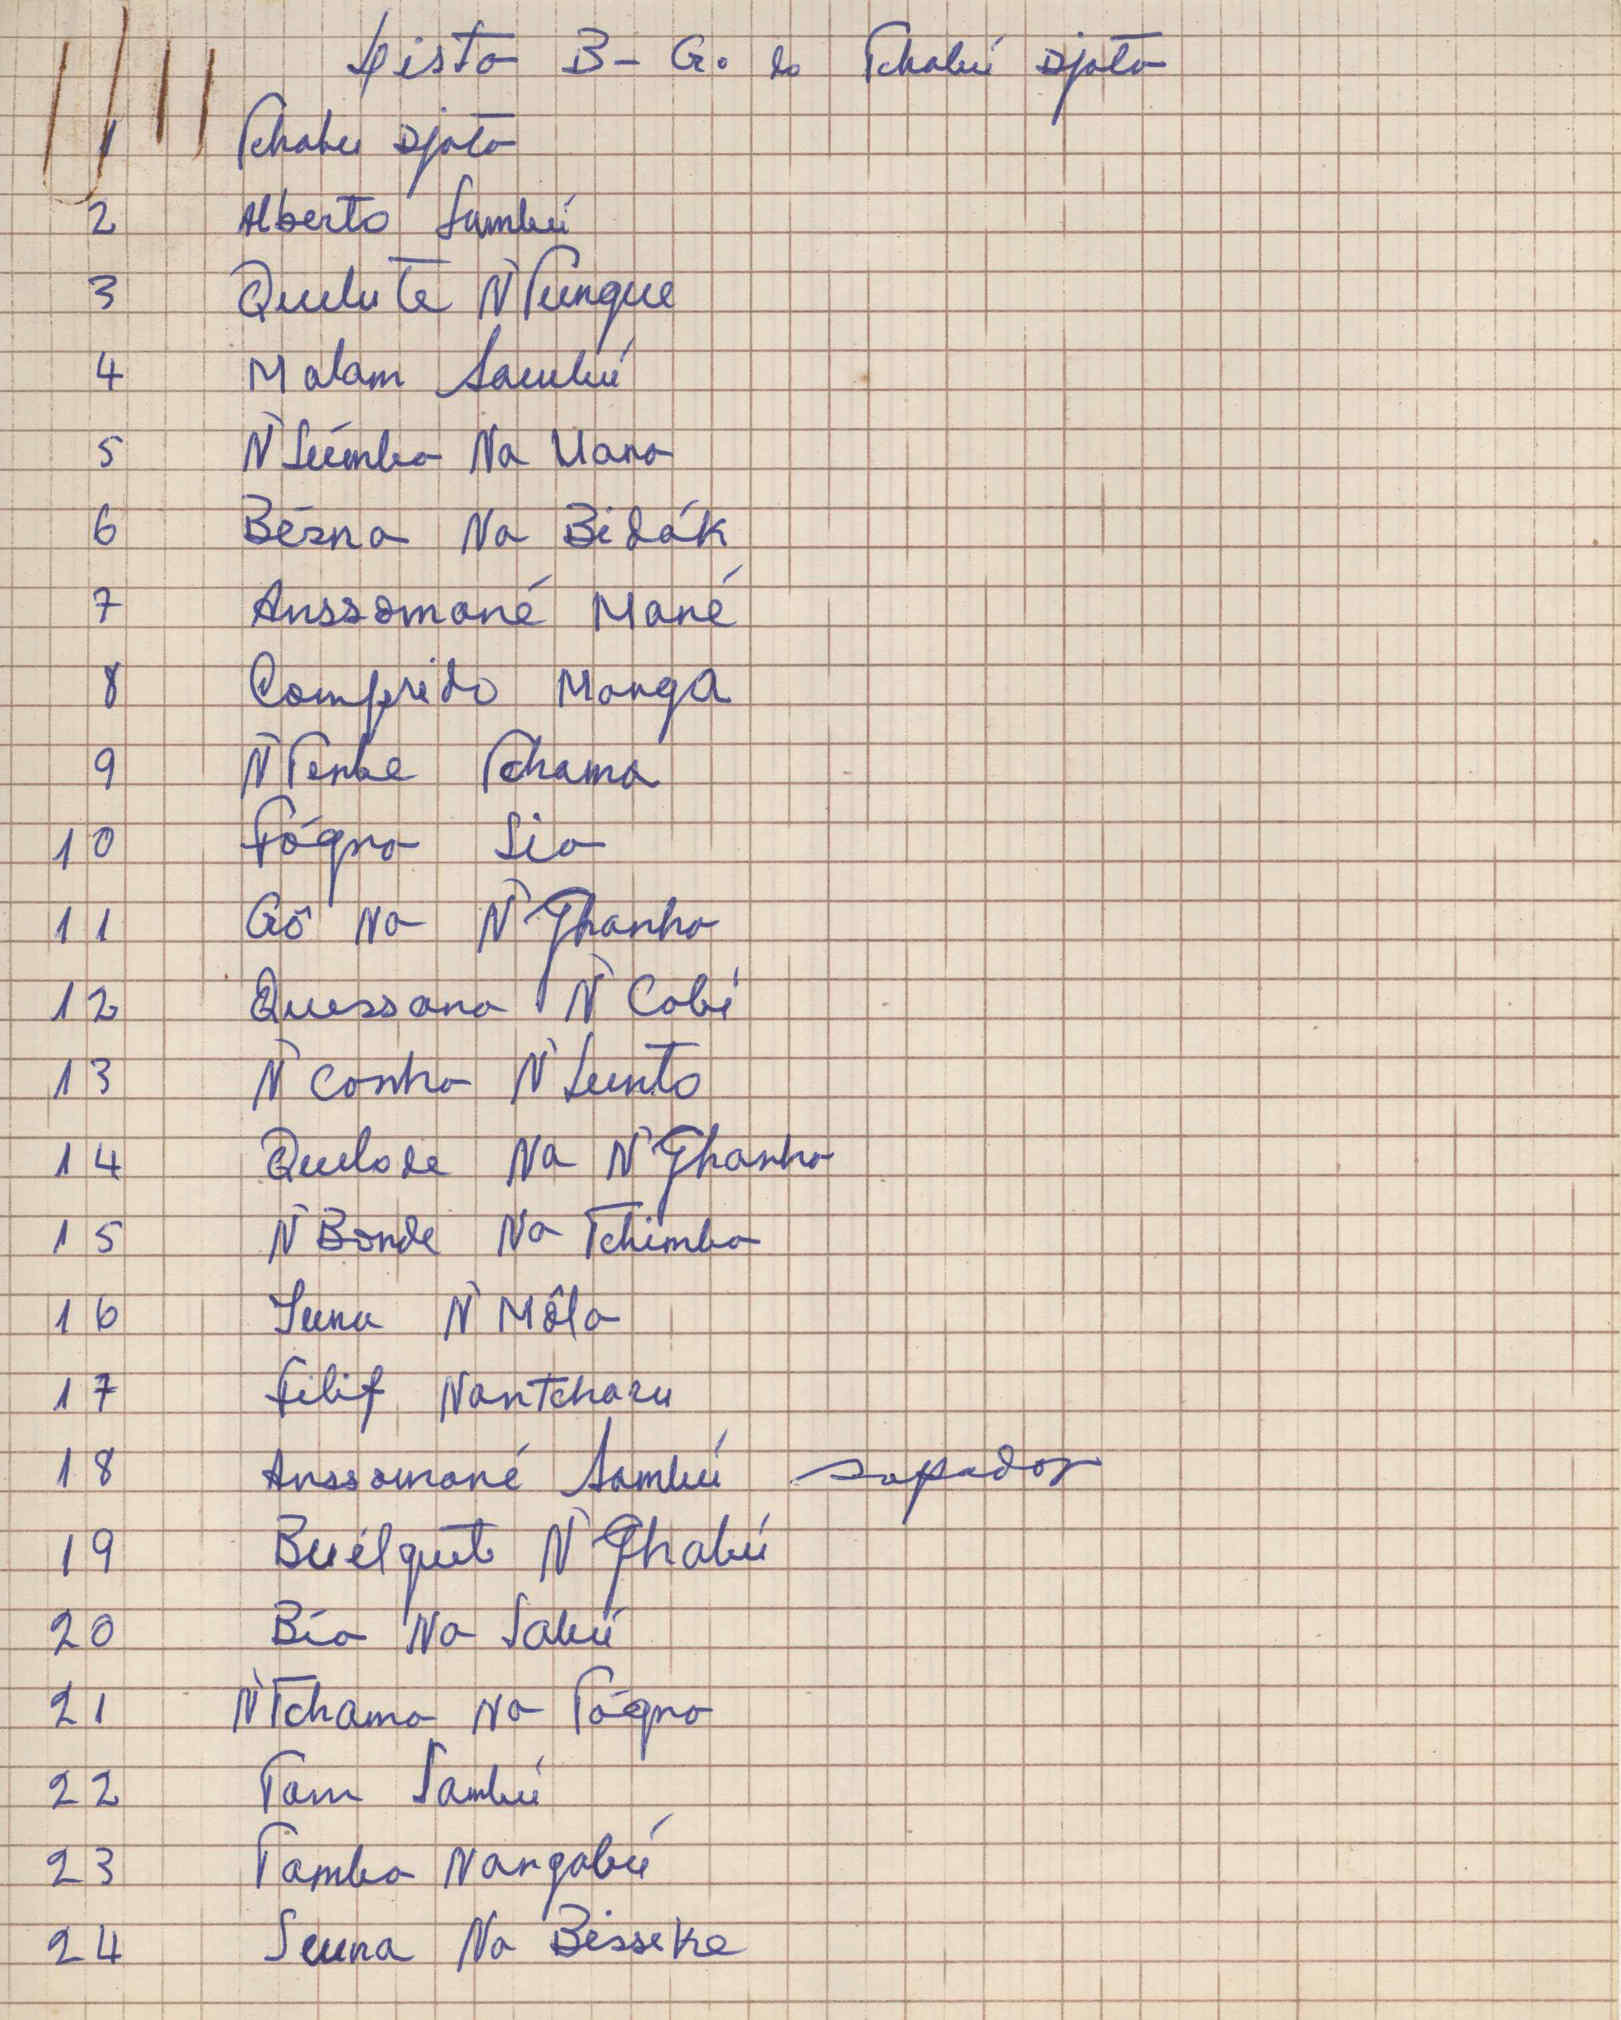 Lista B-G. do Tchabú Djata
1 Tchabu Djata
2 Alberto Sambú
3 Quelute N'Tungue
4 Malam Sambú
5 N'Suémba Na Uana
6 Bésna Na Bidák
7 Anssomané Mané
8 Comprido Manga
9 N'Tenbe Tchama
10 Tógna Sia
11 Gô Na N'Ghanha
12 Quessana N'Cabi
13 N'Conha N'Sunto
14 Quelode Na N'Ghanha
15 N'Bonde Na Tchimba
16 Suna N'Môla
17 Filif Nantcharu
18 Anssomané Sambú sapador
19 Buélquit N'Ghabú
20 Bía Na Sabú
21 N'Tchama Na Tógna
22 Tam Sambú
23 Tamba Nangabú
24 Suna Na Bisseke